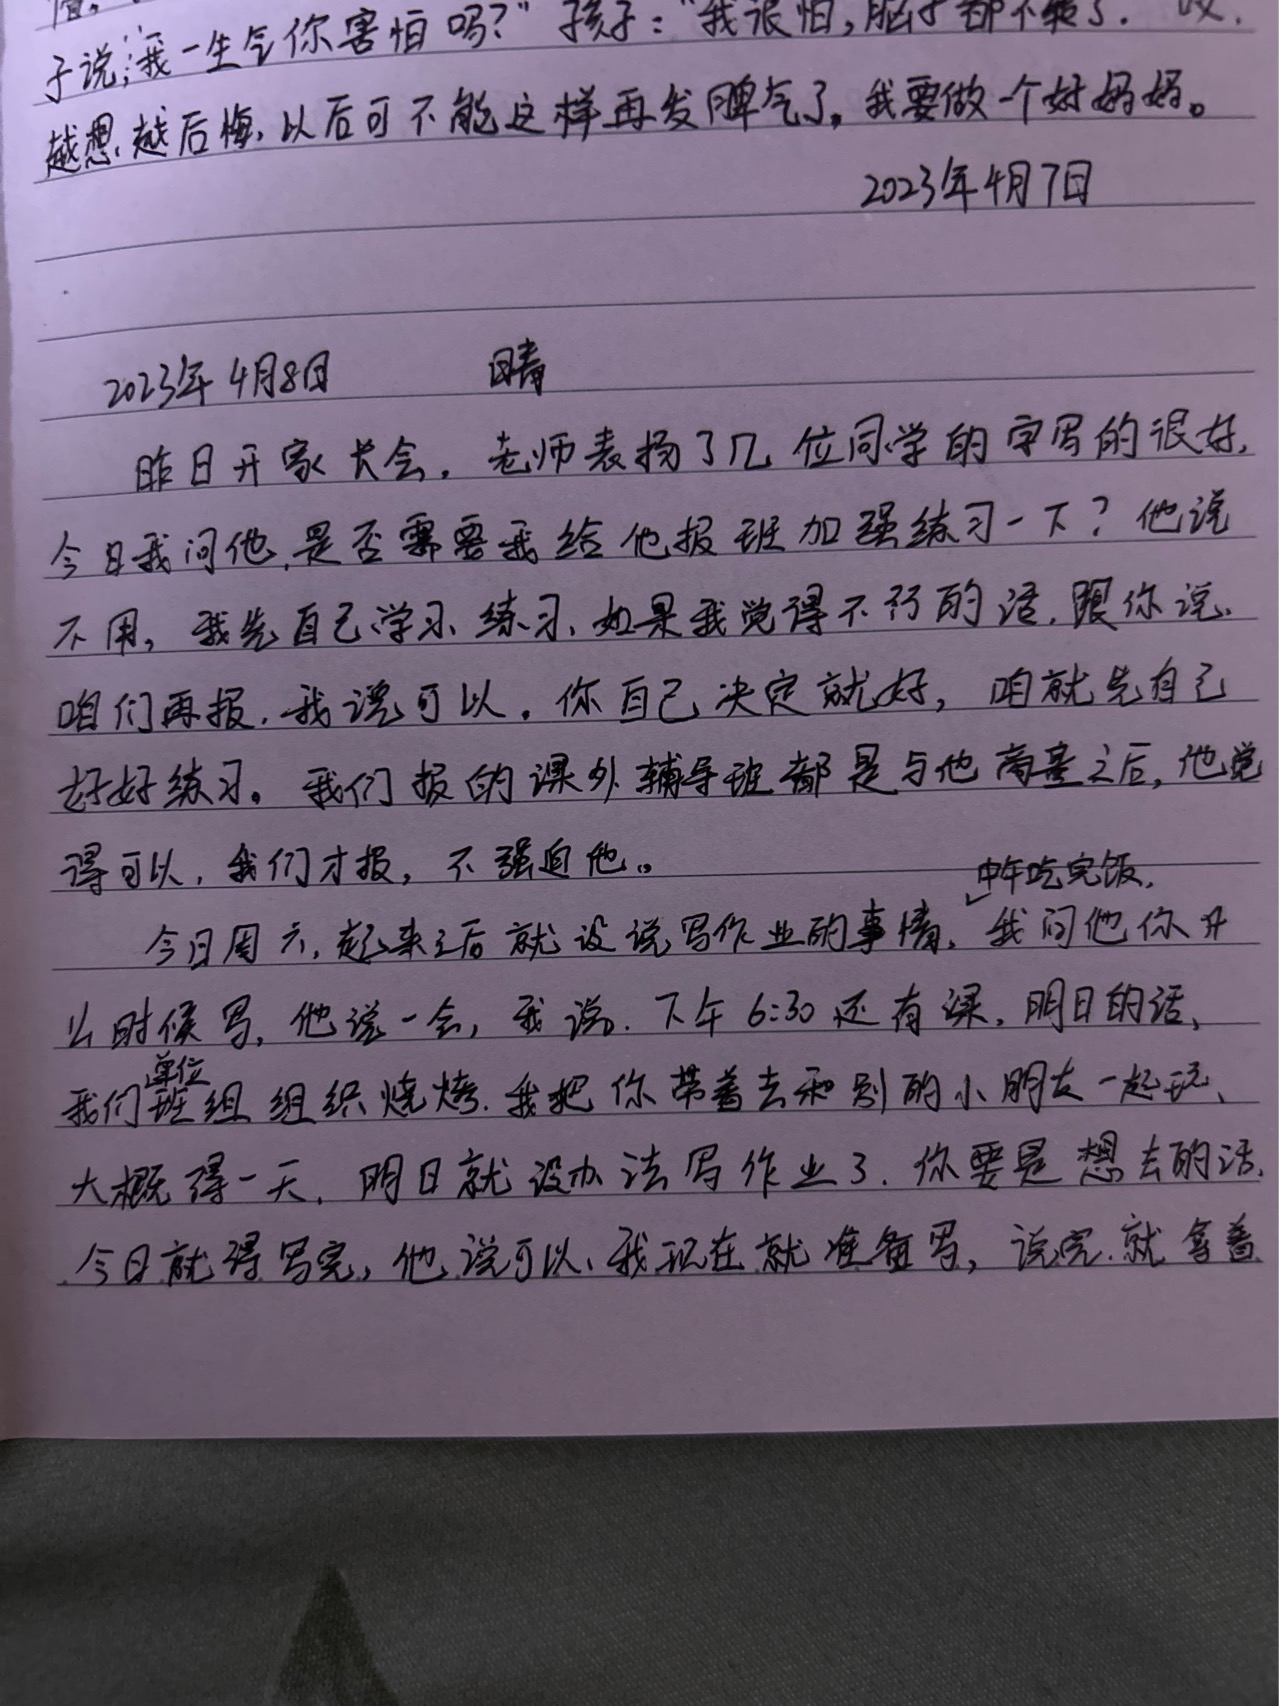 子说:"我一生气你害怕吗?"孩子:"我很怕,脑子都不转了.
越想越后悔,以后可不能这样再发脾气了。我要做一个好妈妈。
2023年4月7日
2023年4月8日 晴
昨日开家长会,老师表扬了几位同学的字写的很好,
今日我问他,是否需要我给他报班加强练习一下?他说
不用,我先自己学习、练习、如果我觉得不行的话,跟你说、
咱们再报.我说可以,你自己决定就好,咱就先自己
好好练习。我们报的课外辅导班都是与他商量之后,他觉
得可以,我们才报,不强迫他。
中午吃完饭,
今日周六,起来之后就没说写作业的事情,我问他你什
么时候写,他说一会,我说.下午6:30还有课,明日的话、
单位
我们班组组织烧烤.我把你带着去和别的小朋友一起玩、
大概得一天,明日就没办法写作业了.你要是想去的话.
今日就得写完,他说可以、我现在就准备写,说完.就拿着